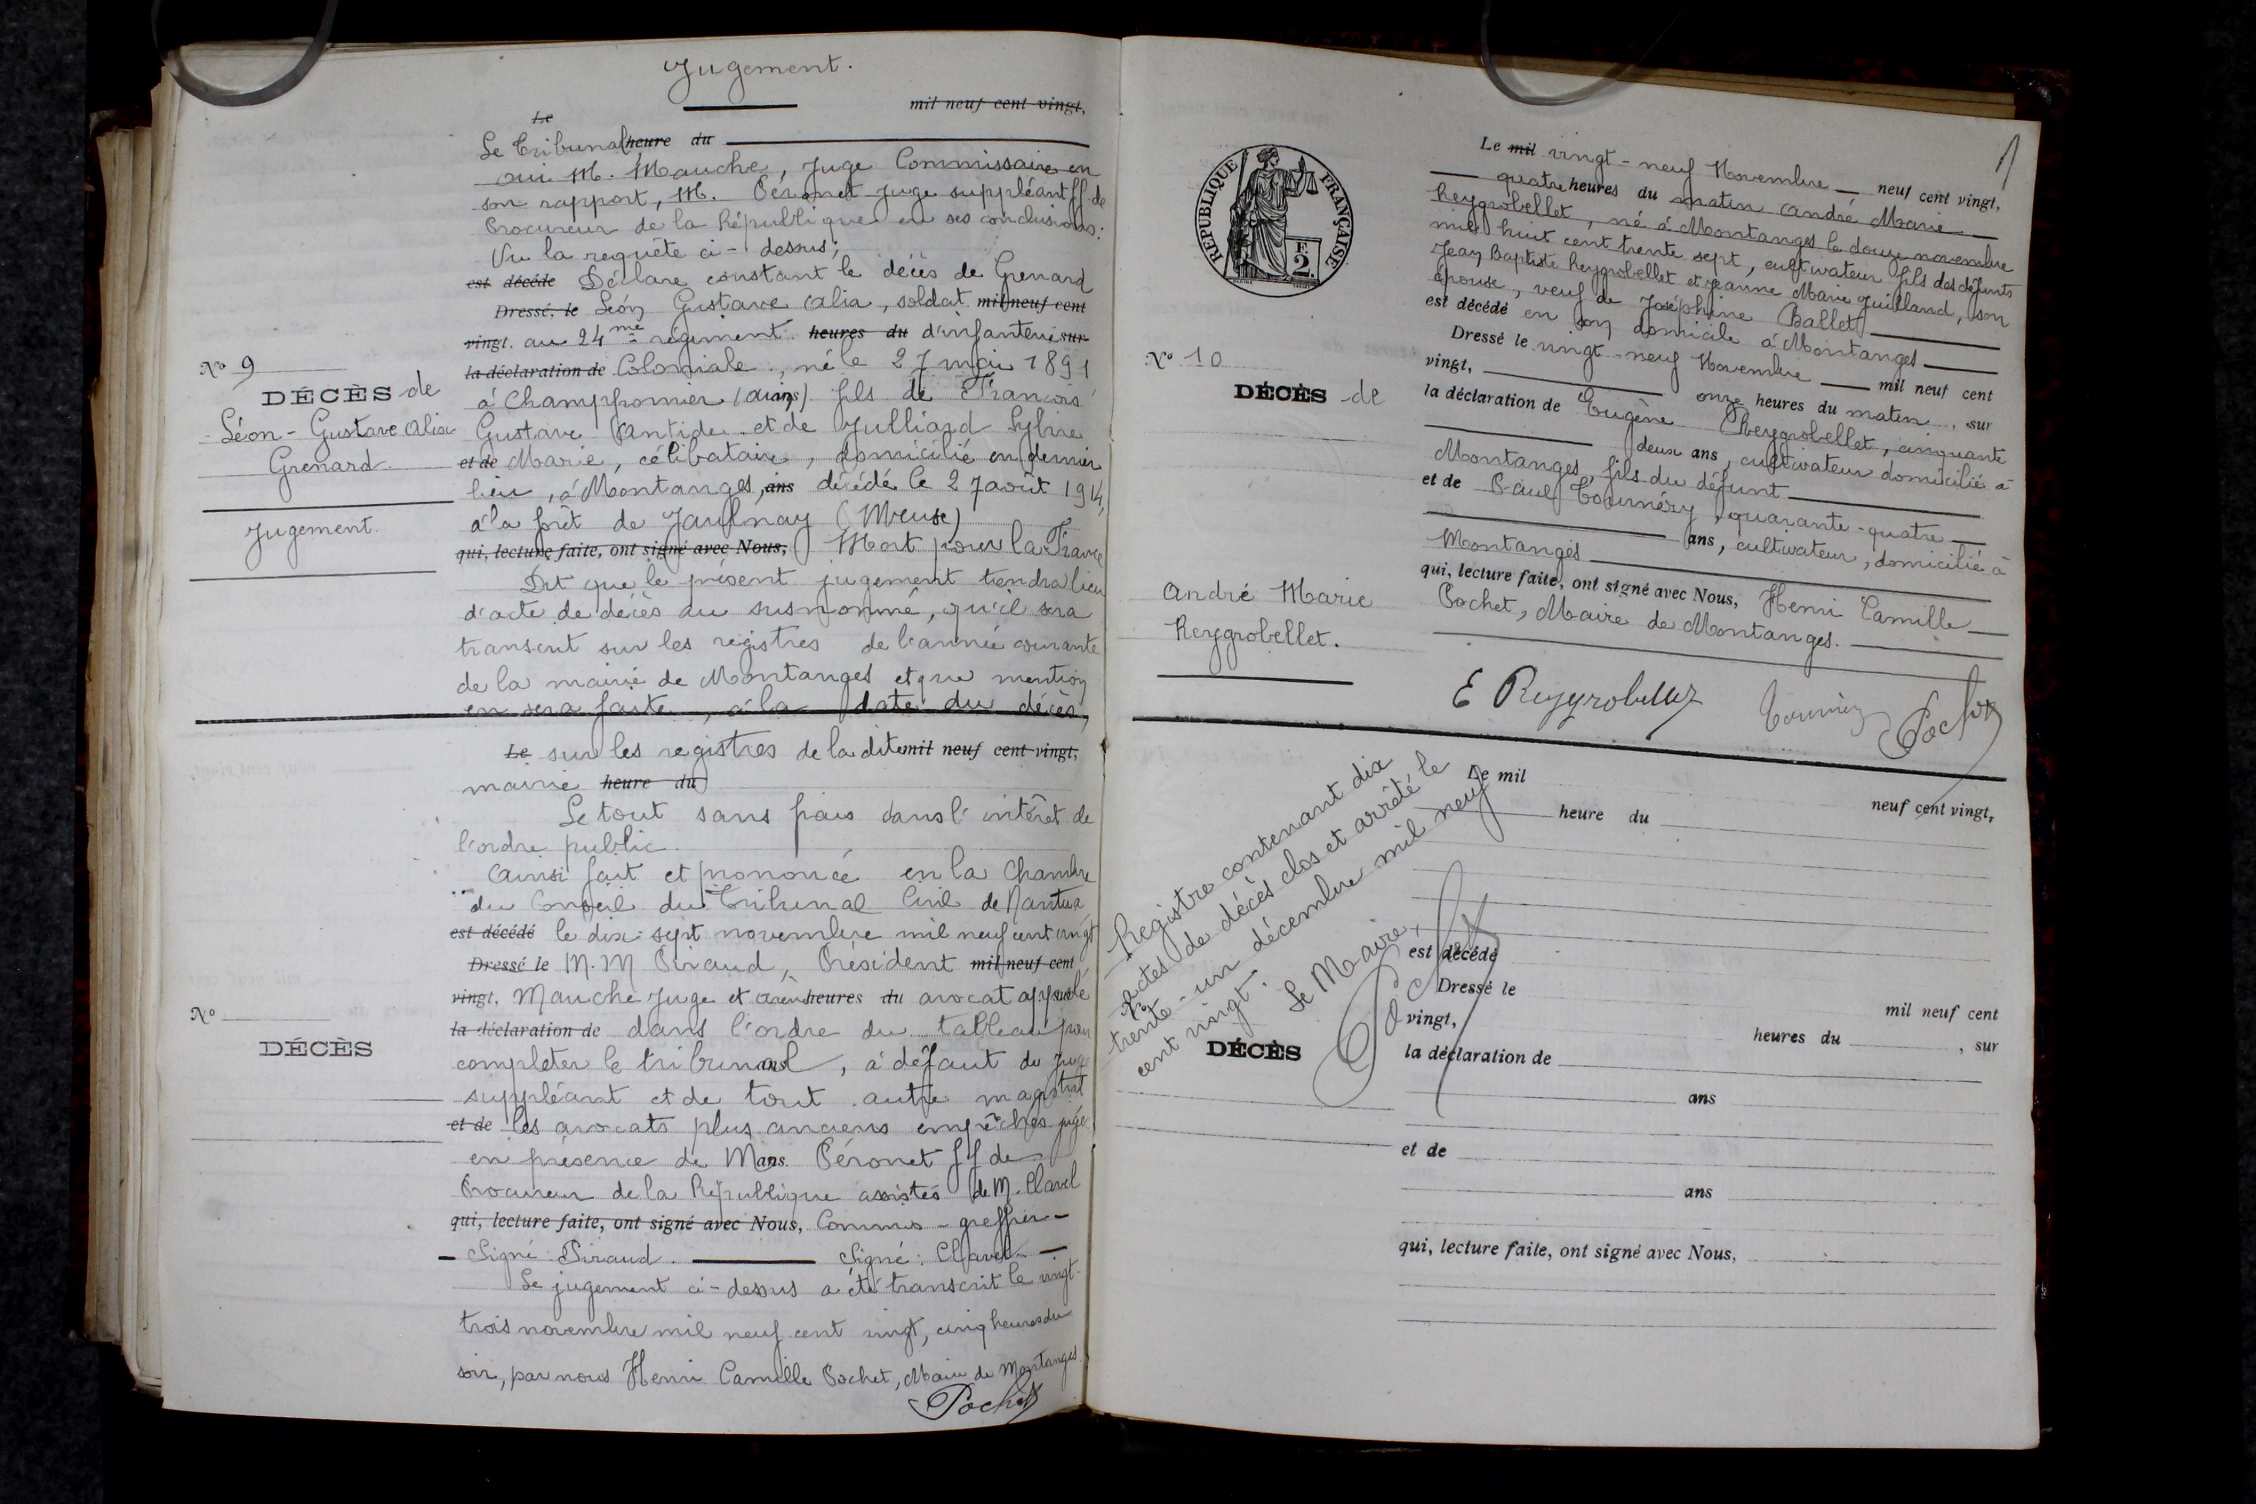 Jugement.
Le mil neuf cent vingt,
Le Tribunal heure du
oui M. Mauche, Juge Commissaire en
son rapport, M. Péronet Juge suppléant ff de
Procureur de la République en ses conclusions:
Vu la requête ci-dessus;
est décédé Déclare constant le décès de Grenard
Dressé le Léon Gustave Alia, soldat mil neuf cent
vingt. au 24me régiment heures du d'infanterie sur
la déclaration de Coloniale, né le 27 mai 1891
à Champfromier (Ain) ans fils de François
Gustave Antide et de Julliard Sylvie
et de Marie, célibataire, domicilié en dernier
lieu, à Montanges, ans décédé le 27 août 1914,
à la forêt de Jaulnay (Meuse)
qui, lecture faite, ont signé avec Nous, Mort pour la France
Dit que le présent jugement tiendra lieu
d'acte de décès au susnommé, qu'il sera
transcrit sur les registres de l'année courante
de la mairie de Montanges et que mention
en sera faite, à la date du décès,
Le sur les registres de la dite mil neuf cent vingt,
mairie heure du
Le tout sans frais dans l'intérêt de
l'ordre public
Ainsi fait et prononcé en la Chambre
du Conseil du Tribunal Civil de Nantua
est décédé le dix-sept novembre mil neuf cent vingt
Dressé le M.M Piraud, Président mil neuf cent
vingt, Mauche Juge et heures du avocat appelé sur
la déclaration de dans l'ordre du tableau pour
completer le tribunal ans, à défaut du juge
suppléant et de tout autre magistrat
et de les avocats plus anciens empêchés
en présence de M ans. Péronet ff de
Procureur de la République assistés de M. Clavel
qui, lecture faite, ont signé avec Nous, Commis-greffier
Signé Piraud. Signé: Clavel
Le jugement ci-dessus a été transcrit le vingt-
trois novembre mil neuf cent vingt, cinq heures du
soir, par nous Henri Camille Pochet, Maire de Montanges
Pochet
No 9
DÉCÈS de
Léon-Gustave Alia
Grenard
Jugement.
No
DÉCÈS
RÉPUBLIQUE FRANÇAISE
F
2.
Le mil vingt-neuf Novembre neuf cent vingt,
quatre heures du matin André Marie
Reygrobellet, né à Montanges le douze novembre
mil huit cent trente sept, cultivateur fils des défunts
Jean Baptiste Reygrobellet et Jeanne Marie Juilland, son
épouse, veuf de Joséphine Ballet
est décédé en son domicile à Montanges
Dressé le vingt-neuf Novembre mil neuf cent
vingt, onze heures du matin, sur
la déclaration de Eugène Reygrobellet, cinquante
deux ans, cultivateur domicilié à
Montanges, fils du défunt
et de Paul Tournéry, quarante-quatre
ans, cultivateur, domicilié à
Montanges
qui, lecture faite, ont signé avec Nous, Henri Camille
Pochet, Maire de Montanges.
E Reygrobellet Pochet
No 10
DÉCÈS de
André Marie
Reygrobellet.
Registre contenant dix
actes de décès clos et arrêté le
trente-un décembre mil neuf
cent vingt.
Le Maire,
Pochet
No
DÉCÈS
Le mil neuf cent vingt,
heure du
est décédé
Dressé le mil neuf cent
vingt, heures du , sur
la déclaration de
ans
et de
ans
qui, lecture faite, ont signé avec Nous,